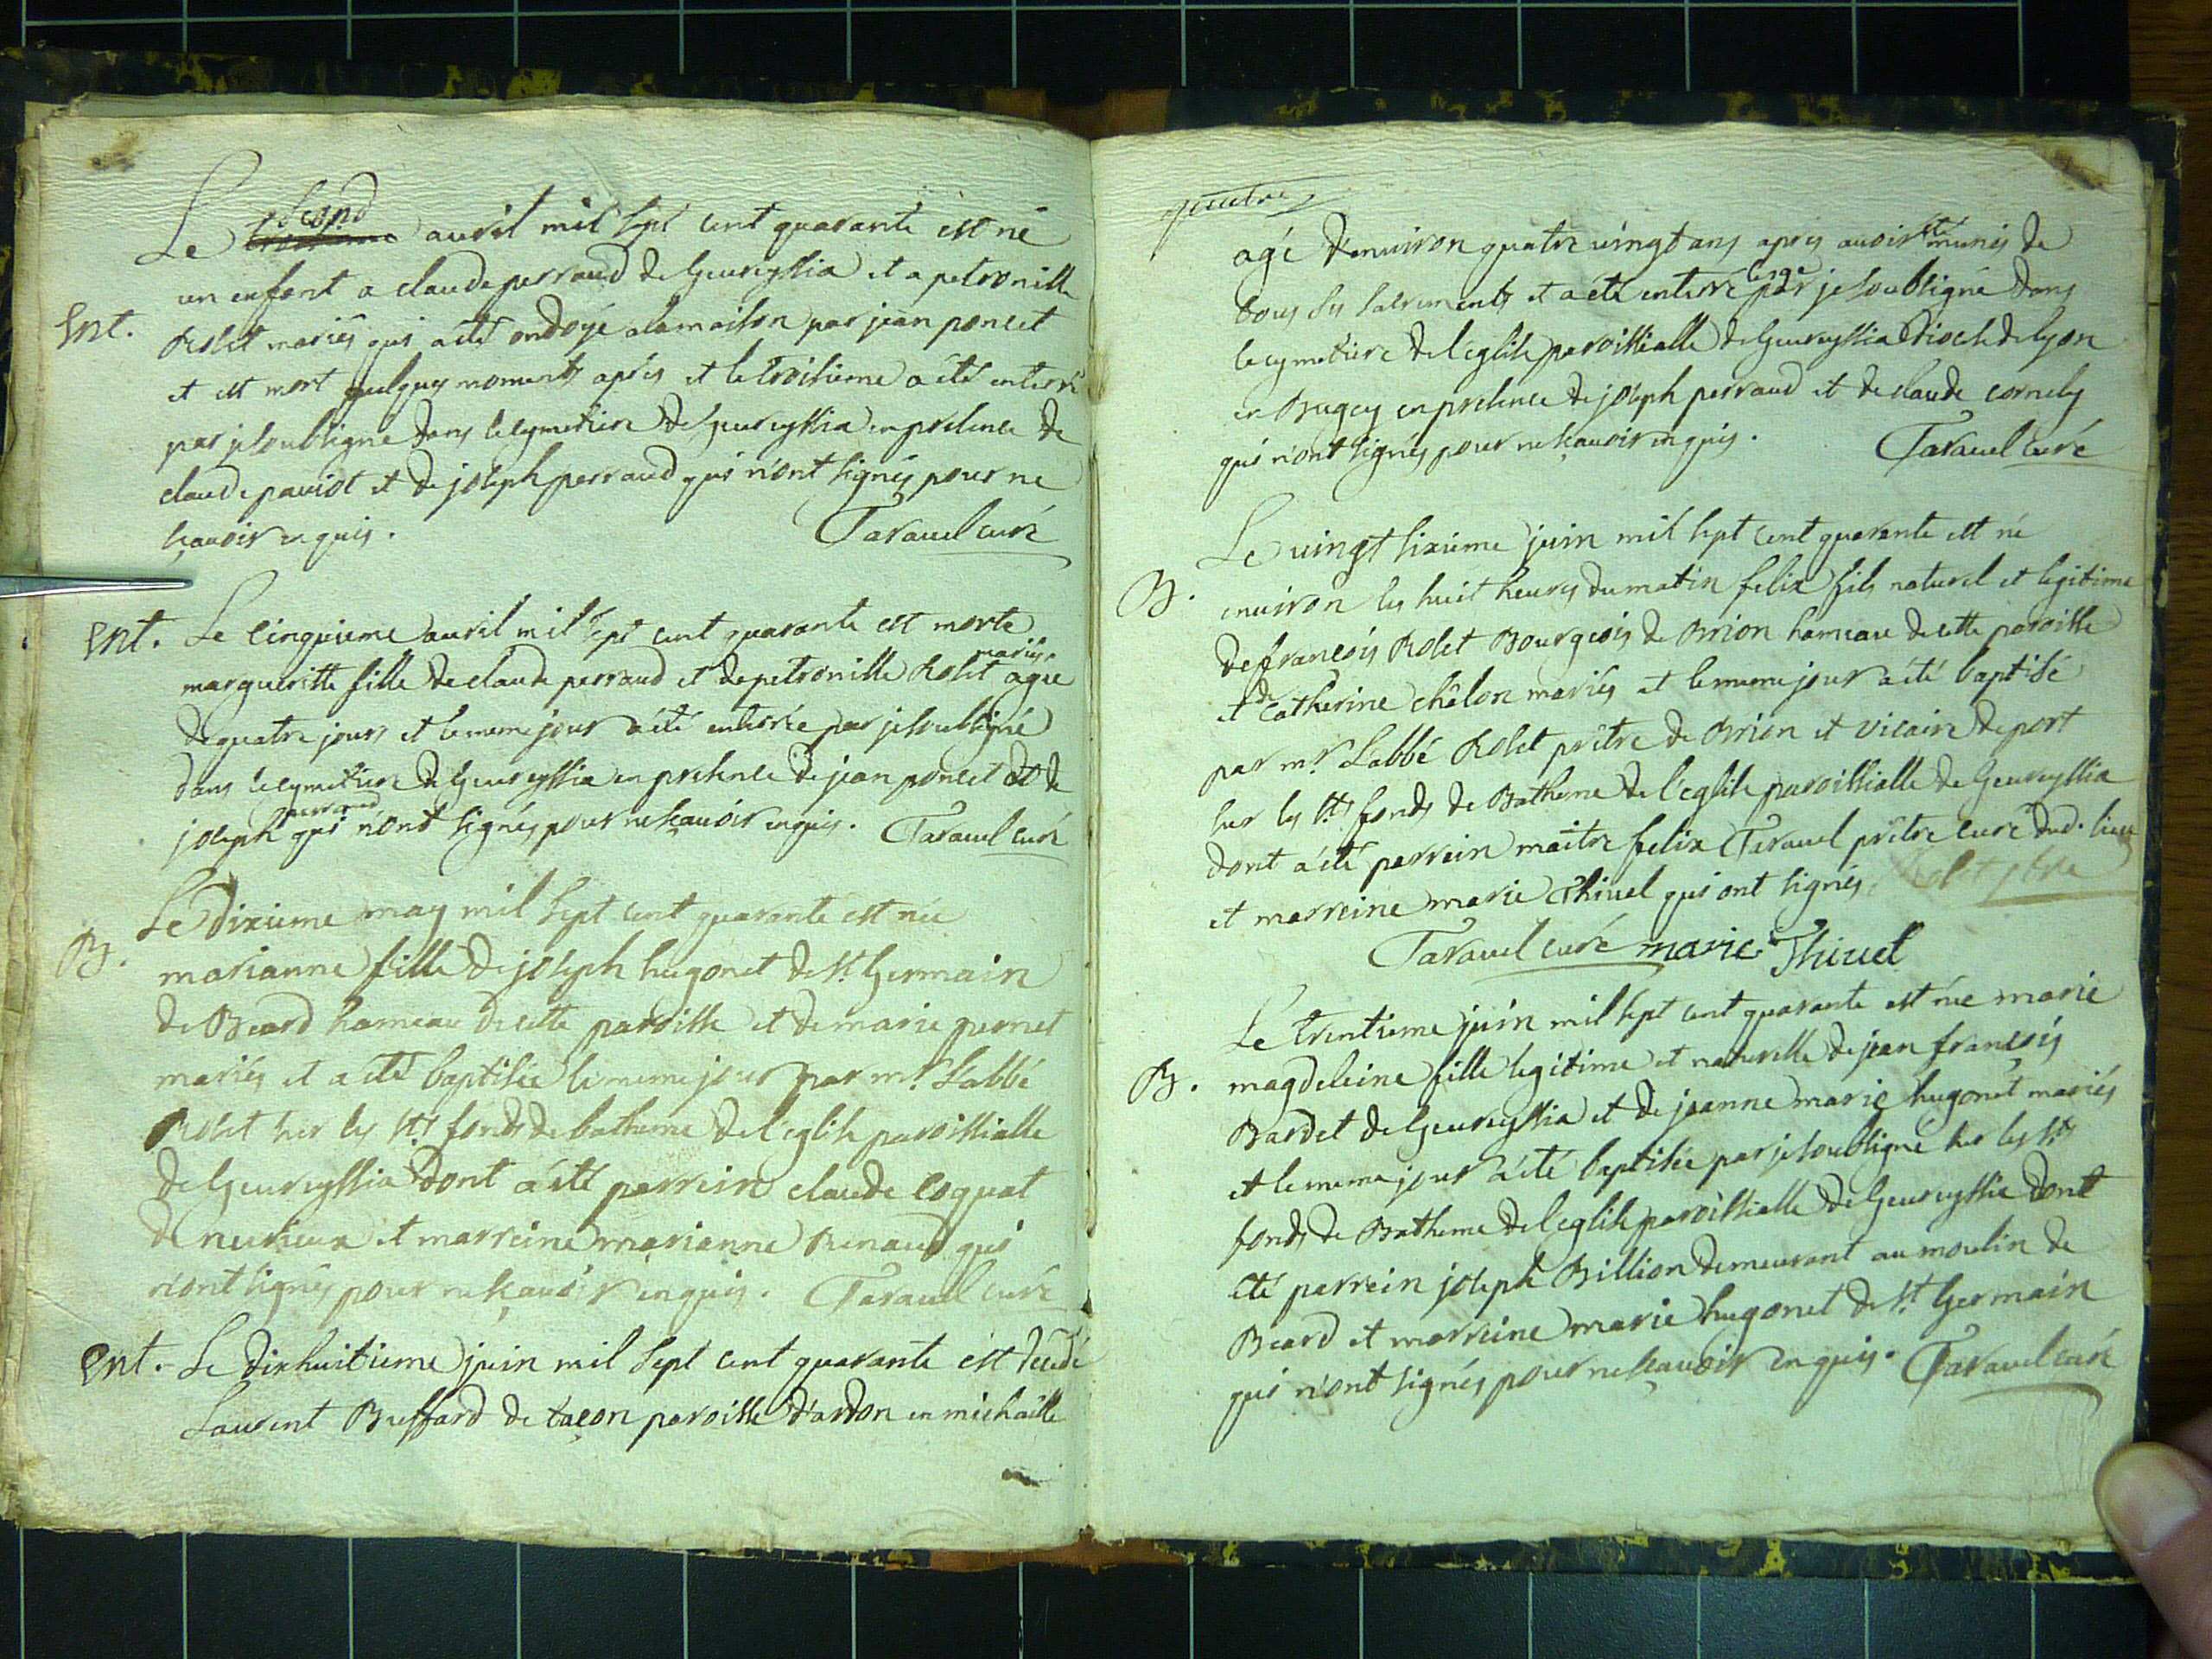 second
Le troisieme avril mil sept cent quarante est né
un enfant a claude perraud de Geureyssia et a petronille
Ent. Rolet mariés qui a été ondoyé a la maison par jean poncet
et est mort quelques moments après et le troisieme a été enterré
par je soubsigné dans le cymetiere de Geureyssia en presence de
claude paviot et de joseph perraud qui n'ont signés pour ne
sçavoir enquis. Taravel curé
Ent. Le cinquieme avril mil sept cent quarante est morte
mariés
margueritte fille de claude perraud et de petronille Rolet agée
de quatre jours et le meme jour a été enterrée par je soubsigné
dans le cymetiere de Geureyssia en presence de jean poncet et de
perraud
joseph qui n'ont signés pour ne sçavoir enquis. Taravel curé
Le dixieme may mil sept cent quarante est née
B. marianne fille de joseph hugonet de st. Germain
de Beard hameau de cette paroisse et de marie pernet
mariés et a été baptisée le meme jour par mr. L'abbé
Rolet sur les sts. fonds de batheme de l'eglise paroissialle
de Geureyssia dont a été parrein claude coquat
de nurieux et marreine marianne Renaud qui
n'ont signés pour ne sçavoir enquis. Taravel curé
Ent. Le dixhuitieme juin mil sept cent quarante est décédé
Laurent Buffard de tacon paroisse d'ardon en michaille
agé d'environ quatre vingt ans après avoir été munis de
tous ses sacrements et a été enterré par je soubsigné dans
le cymetiere de l'eglise paroissialle de Geureyssia diocese de lyon
en Bugey en presence de joseph perraud et de claude cornely
qui n'ont signés pour ne sçavoir enquis. Taravel curé
Le vingt sixieme juin mil sept cent quarante est né
B. environ les huit heures du matin felix fils naturel et legitime
de françois Rolet Bourgeois de Brion hameau de cette paroisse
et de catherine châlon mariés et le meme jour a été baptisé
par mr. L'abbé Rolet prêtre de Brion et vicaire de port
sur les sts. fonds de Batheme de l'eglise paroissialle de Geureyssia
dont a été parrein maitre felix Taravel prêtre curé dud. lieu
et marreine marie Thivel qui ont signés. Rolet ptre
Taravel curé marie Thivel
Le trentieme juin mil sept cent quarante est née marie
B. magdeleine fille legitime et naturelle de jean françois
Bardet de Geureyssia et de jeanne marie hugonet mariés
et le meme jour a été baptisée par je soubsigné sur les sts
fonds de Batheme de l'eglise paroissialle de Geureyssia dont
été parrein joseph Billion demeurant au moulin de
Beard et marreine marie hugonet de st. Germain
qui n'ont signés pour ne sçavoir enquis. Taravel curé